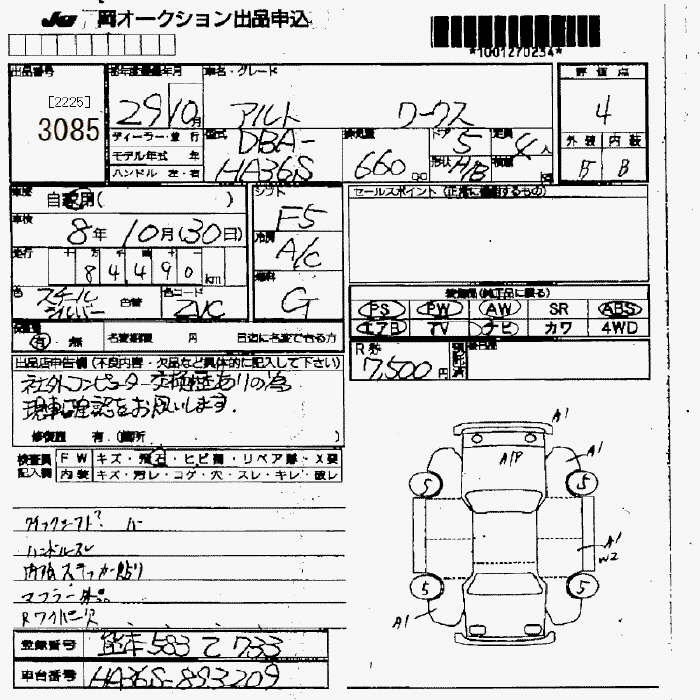 岡オークション出品申込
*1001270234*
出品番号
[2225]
3085
車名・グレード
29年10月
アルト ワークス
評価点
4
外装 内装
B B
ディーラー・並行
モデル年式 年
ハンドル 左・右
型式
DBA-
HA36S
排気量
660
ドア
5
形状
H/B
定員
4人
車歴
自家用( )
車検
8年10月(30日)
走行
84490km
色
スチール
シルバー
色替
色コード
ZVC
シフト
F5
冷房
A/C
燃料
G
セールスポイント(正常に機能するもの)
装備欄(純正品に限る)
PS PW AW SR ABS
エアB TV ナビ カワ 4WD
有・無 名変期限 月 日迄に名変できる方
R税
7,500円
出品店申告欄(不良内容・欠品など具体的に記入して下さい)
社外コンピューター交換歴ありの為
現車確認をお願いします.
修復歴 有・(箇所 )
検査員
記入欄
FW キズ・飛石・ヒビ割・リペア跡・X要
内装 キズ・汚レ・コゲ・穴・スレ・キレ・破レ
ハンドルスレ
内張ステッカー貼り
A1
A/P
A1
5 5
A1
W2
5 5
A1
登録番号 熊本 583 て 733
車台番号 HA36S-893209